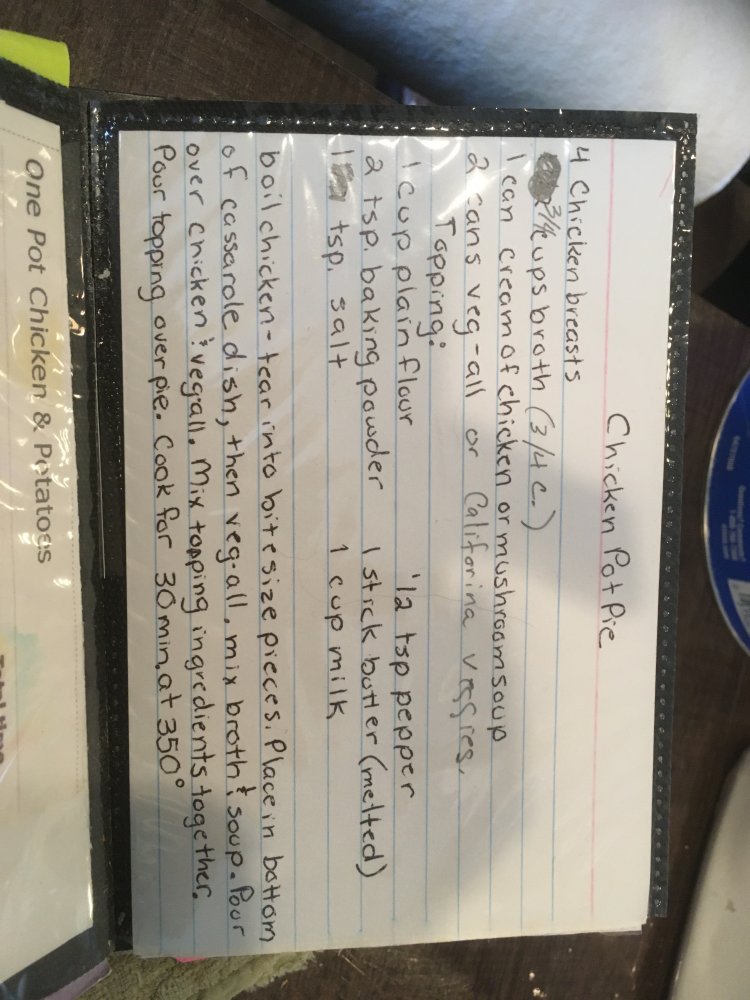 Chicken Pot Pie
4 Chicken breasts
3/4 cups broth (3/4 c.)
1 can cream of chicken or mushroom soup
2 cans veg-all or Califorina veggies.
Topping:
1 cup plain flour 1/2 tsp pepper
2 tsp. baking powder 1 stick butter (melted)
1 tsp. salt 1 cup milk
boil chicken - tear into bite size pieces. Place in bottom
of cassarole dish, then veg-all. mix broth & soup. Pour
over chicken & vegall. Mix topping ingredients together.
Pour topping over pie. Cook for 30 min. at 350°
One Pot Chicken & Potatoes